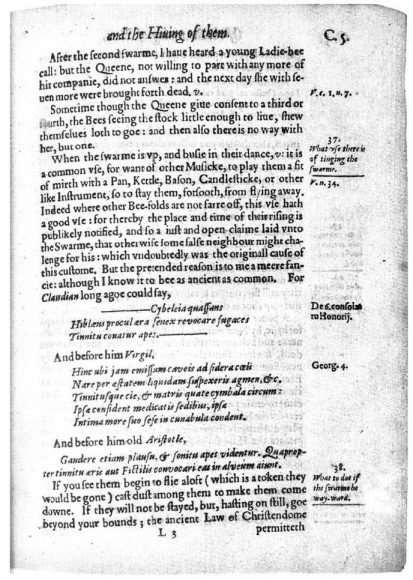 and the Hiuing of them.
C. 5.
After the second swarme, I haue heard a young Ladie-bee
call: but the Queene, not willing to part with any more of
his companie, did not answer: and the next day shee with se-
uen more were brought forth dead. v.
V. c. 1. n. 7.
Sometime though the Queene giue consent to a third or
fourth, the Bees seeing the stock little enough to liue, shew
themselues loth to goe: and then also there is no way with
her, but one.
37.
What vse there is
of tinging the
swarme.
When the swarme is vp, and busie in their dance, v: it is
a common vse, for want of other Musicke, to play them a fit
V. n. 34.
of mirth with a Pan, Kettle, Bason, Candlesticke, or other
like Instrument, so to stay them, forsooth, from flying away.
Indeed where other Bee-folds are not farre off, this vse hath
a good vse: for thereby the place and time of their rising is
publikely notified, and so a iust and open claime laid vnto
the Swarme, that otherwise some false neighbour might cha-
lenge for his: which vndoubtedly was the originall cause of
this custome. But the pretended reason is to me a meere fan-
cie: although I know it to bee as ancient as common. For
Claudian long agoe could say,
De 6. consolat
to Honorij.
Cybeleia quassans
Hiblæus procul æra senex revocare fugaces
Tinnitu conatur apes.
And before him Virgil,
Georg. 4.
Hinc ubi jam emissum caveis ad sidera cœli
Nare per æstatem liquidam suspexeris agmen, &c.
Tinnitusque cie, & matris quate cymbala circum:
Ipsæ consident medicatis sedibus, ipsæ
Intima more suo sese in cunabula condent.
And before him old Aristotle,
Gaudere etiam plausu, & sonitu apes videntur. Quaprop-
ter tinnitu æris aut Fictilis convocari eas in alveum aiunt.
38.
What to doe if
the swarme be
way-ward.
If you see them begin to flie aloft (which is a token they
would be gone) cast dust among them to make them come
downe. If they will not be stayed, but, hasting on still, goe
beyond your bounds; the ancient Law of Christendome
L 3
permitteth